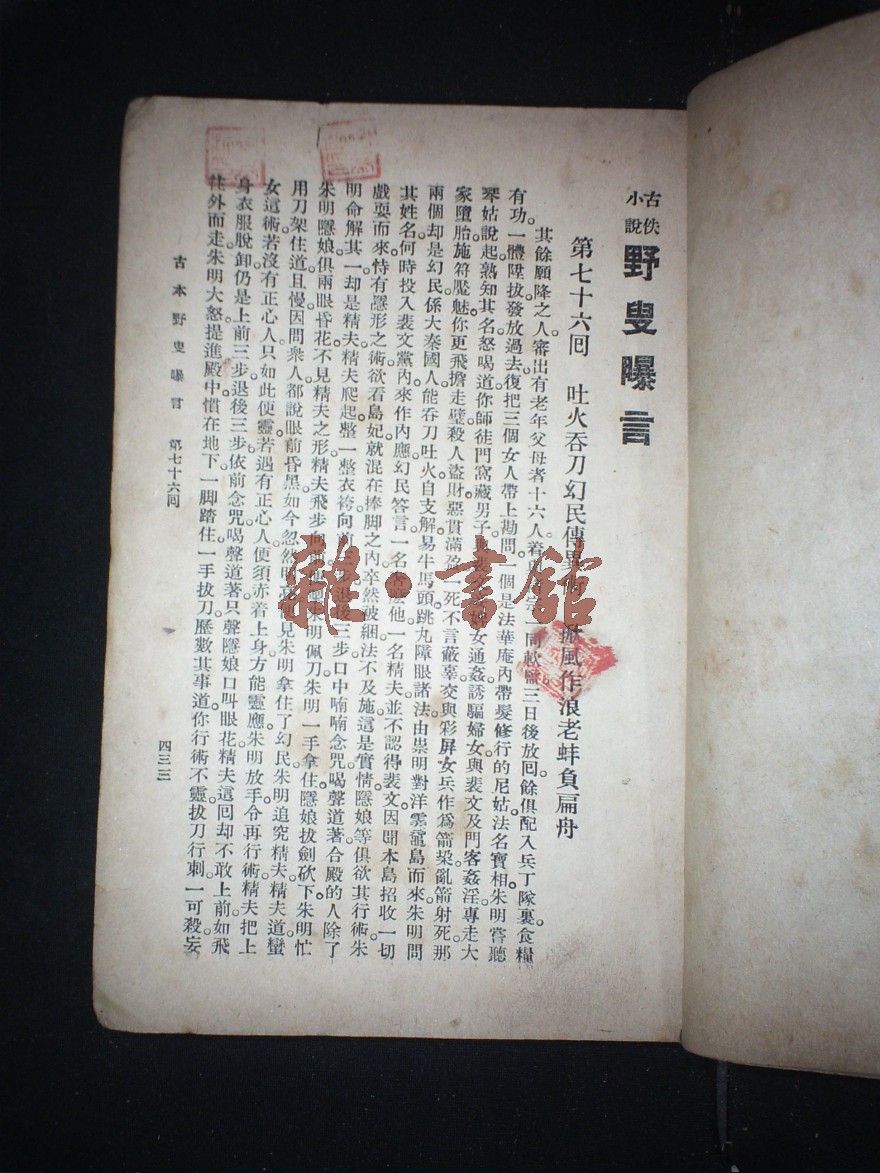 古佚
小說
野叟曝言
第七十六囘　吐火吞刀幻民傳異　掀風作浪老蚌負扁舟
其餘願降之人審出有老年父母者十六人着　同軟監三日後放囘餘俱配入兵丁隊裏食糧
有功一體陞拔發放過去復把三個女人帶上勘問一個是法華庵內帶髮修行的尼姑法名寶相朱明嘗聽
琴姑說起熟知其名怒喝道你師徒門窩藏男子　女通姦誘騙婦女與裴文及門客姦淫專走大
家墮胎施符魘魅你更飛擔走壁殺人盜財惡貫滿盈一死不言蔽辜交與彩屏女兵作爲箭垛亂箭射死那
兩個却是幻民係大秦國人能吞刀吐火自支解易牛馬頭跳九障眼諸法由崇明對洋雲龍島而來朱明問
其姓名何時投入裴文黨內來作內應幻民答言一名　他一名精夫並不認得裴文因聞本島招收一切
戲耍而來恃有隱形之術欲看島妃就混在捧脚之內卒然被綑法不及施這是實情隱娘等俱欲其行術朱
明命解其一却是精夫精夫爬起整一整衣袴向前　步退後三步口中喃喃念咒喝聲道著合殿的人除了
朱明隱娘俱兩眼昏花不見精夫之形精夫飛步向前　朱明佩刀朱明一手拿住隱娘拔劍砍下朱明忙
用刀架住道且慢因問衆人都說眼前昏黑如今忽然明亮便見朱明拿住了幻民朱明追究精夫精夫道蠻
女這術若沒有正心人只如此便靈若遇有正心人便須赤着上身方能靈應朱明放手令再行術精夫把上
身衣服脫卸仍是上前三步退後三步依前念咒喝聲道著只聲隱娘口叫眼花精夫這囘却不敢上前如飛
往外而走朱明大怒提進殿中慣在地下一脚踏住一手拔刀歷數其事道你行術不靈拔刀行刺一可殺妄
古本野叟曝言　第七十六囘
四三三
雜·書館